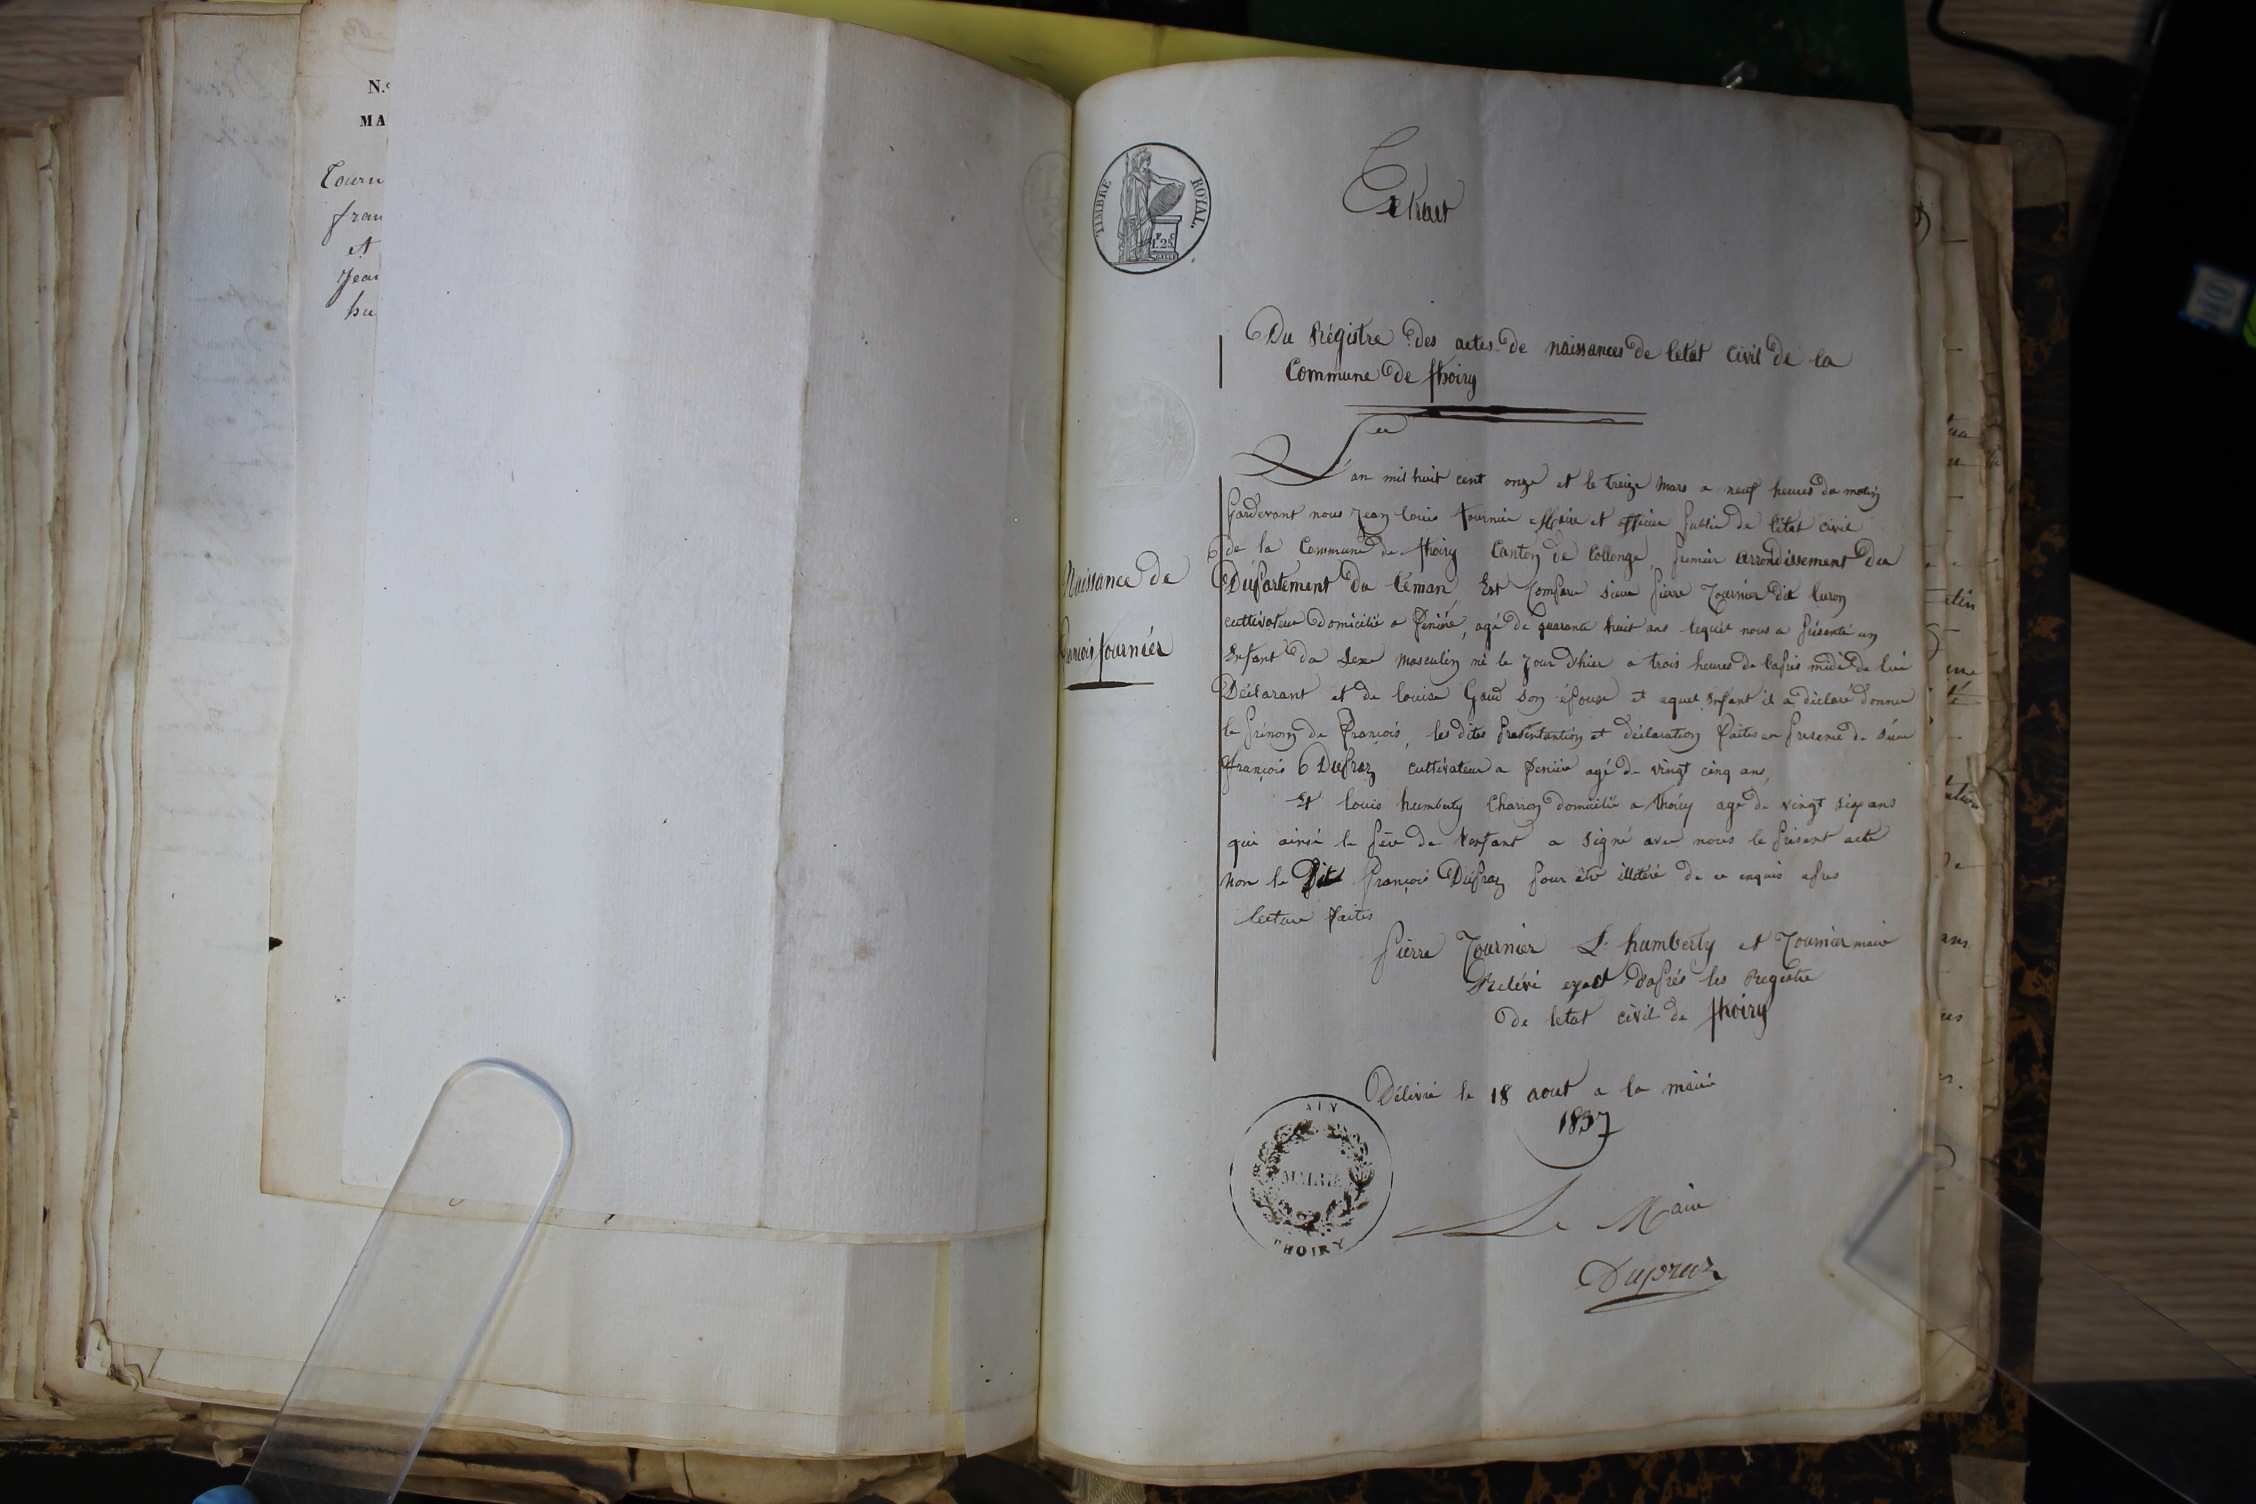 N.o
MA
Tourn
fran
et
Jean
hu
TIMBRE ROYAL.
F. C
1.25
Extrait
Du Régistre des actes de naissances de letat civil de la
Commune de thoiry
L'an mil huit cent onze et le treize Mars a neuf heures du matin
Pardevant nous Jean louis tournier Maire et officier public de létat civil
de la Commune de thoiry Canton de Collonge, premier arrondissement du
Département du Leman, Est Comparu sieur pierre Tournier dit luron
cultivateur domicilié a fenière, agé de quarante huit ans lequel nous a présenté un
Enfant du Sexe masculin né le Jour d'hier a trois heures de laprès midi de lui
Déclarant et de louise Gaud son épouse et aquel Enfant il a déclaré donner
le prénom de François, les dites présentantion et déclaration faites en presence de sieur
François Dupraz cultivateur a feniere agé de vingt cinq ans,
Et louis humberty Charron domicilié a thoiry agé de vingt six ans
qui ainsi le père de l'enfant a signé avec nous le présent acte
non le Dit François Dupraz pour être illitéré de ce enquis après
lecture faites
pierre Tournier L. humberty et Tournier maire
Relévé exact d'après les Registre
de letat civil de thoiry
Naissance de
françois fournier
Délivré le 18 aout a la mairie
1837
AIN
MAIRIE
THOIRY
Le Maire
Dupraz